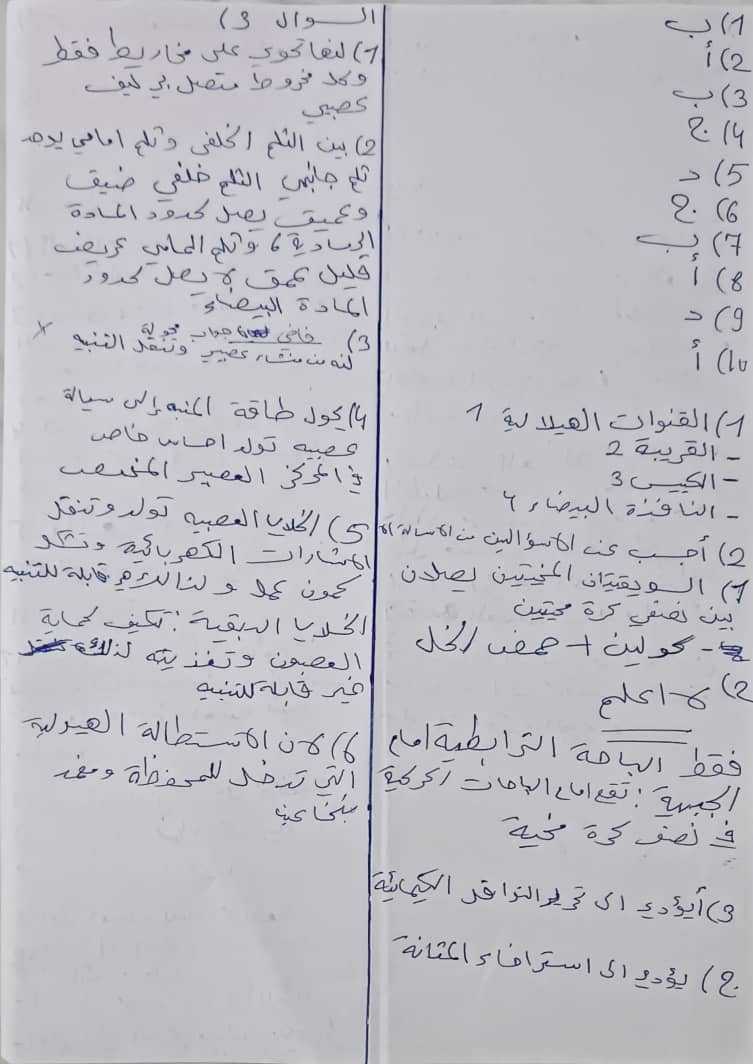 1) ب
2) أ
3) ب
4) ج
5) د
6) ج
7) ب
8) أ
9) د
10) أ
1) القنوات الهيلالية 1
- القريبة 2
- الكييس 3
- النافذة البيضاء 4
2) أجب عن الاسوالين من الاسالة
1) السويقيتان المخيتين يصلان
بين نصفي كرة مخيتين
- كولين + حمض الخل
2) لا اعلم
فقط الباحة الترابطية امام
الجبهية: تقع امام الباحات الحركية
في نصف كرة مخية
3) أ يؤدي الى تحرير النواقل الكيمائية
ج) يؤدي الى استرخاء المثانة
السوال 3)
1) لنها تحوي على مخاريط فقط
وكل مخروط متصل بي ليف
عصبي
2) بين الثلم الخلفي وثلم امامي يوجد
ثلم جانبي الثلم خلفي ضيق
وعميق يصل لحدود المادة
الرمادية، وثلم امامي عريض
قليل عمق لا يصل لحدود
المادة البيضاء
3) جواب
لنه من منشاء عصبي وتنقل التنبيه
4) يحول طاقة المنبه إلى سيالة
عصبيه تولد احساس خاص
في المركز العصبي المختص
5) الخلايا العصبيه تولد وتنقل
الاشارات الكهربائية وتشكل
كمون عمل ولذا قابلة للتنبيه
الخلايا الدبقية: تكيف لحماية
العصبون وتغذيته لذلك
غير قابلة للتنبيه
6) لان الاستطالة الهيولية
التي تدخل للمحفظة ومغمد
بنخاعين